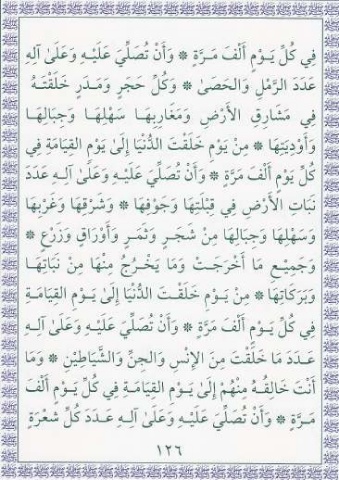 فِي كُلِّ يَوْمٍ أَلْفَ مَرَّةٍ ۞ وَأَنْ تُصَلِّيَ عَلَيْهِ وَعَلَىٰ آلِهِ
عَدَدَ الرَّمْلِ وَالْحَصَىٰ ۞ وَكُلِّ حَجَرٍ وَمَدَرٍ خَلَقْتَهُ
فِي مَشَارِقِ الأَرْضِ وَمَغَارِبِهَا سَهْلِهَا وَجِبَالِهَا
وَأَوْدِيَتِهَا ۞ مِنْ يَوْمِ خَلَقْتَ الدُّنْيَا إِلَىٰ يَوْمِ الْقِيَامَةِ فِي
كُلِّ يَوْمٍ أَلْفَ مَرَّةٍ ۞ وَأَنْ تُصَلِّيَ عَلَيْهِ وَعَلَىٰ آلِهِ عَدَدَ
نَبَاتِ الأَرْضِ فِي قِبْلَتِهَا وَجَوْفِهَا ۞ وَشَرْقِهَا وَغَرْبِهَا
وَسَهْلِهَا وَجِبَالِهَا مِنْ شَجَرٍ وَثَمَرٍ وَأَوْرَاقٍ وَزَرْعٍ ۞
وَجَمِيعِ مَا أَخْرَجَتْ وَمَا يَخْرُجُ مِنْهَا مِنْ نَبَاتِهَا
وَبَرَكَاتِهَا ۞ مِنْ يَوْمِ خَلَقْتَ الدُّنْيَا إِلَىٰ يَوْمِ الْقِيَامَةِ
فِي كُلِّ يَوْمٍ أَلْفَ مَرَّةٍ ۞ وَأَنْ تُصَلِّيَ عَلَيْهِ وَعَلَىٰ آلِهِ
عَدَدَ مَا خَلَقْتَ مِنَ الإِنْسِ وَالْجِنِّ وَالشَّيَاطِيْنِ ۞ وَمَا
أَنْتَ خَالِقُهُ مِنْهُمْ إِلَىٰ يَوْمِ الْقِيَامَةِ فِي كُلِّ يَوْمٍ أَلْفَ
مَرَّةٍ ۞ وَأَنْ تُصَلِّيَ عَلَيْهِ وَعَلَىٰ آلِهِ عَدَدَ كُلِّ شَعْرَةٍ
١٢٦